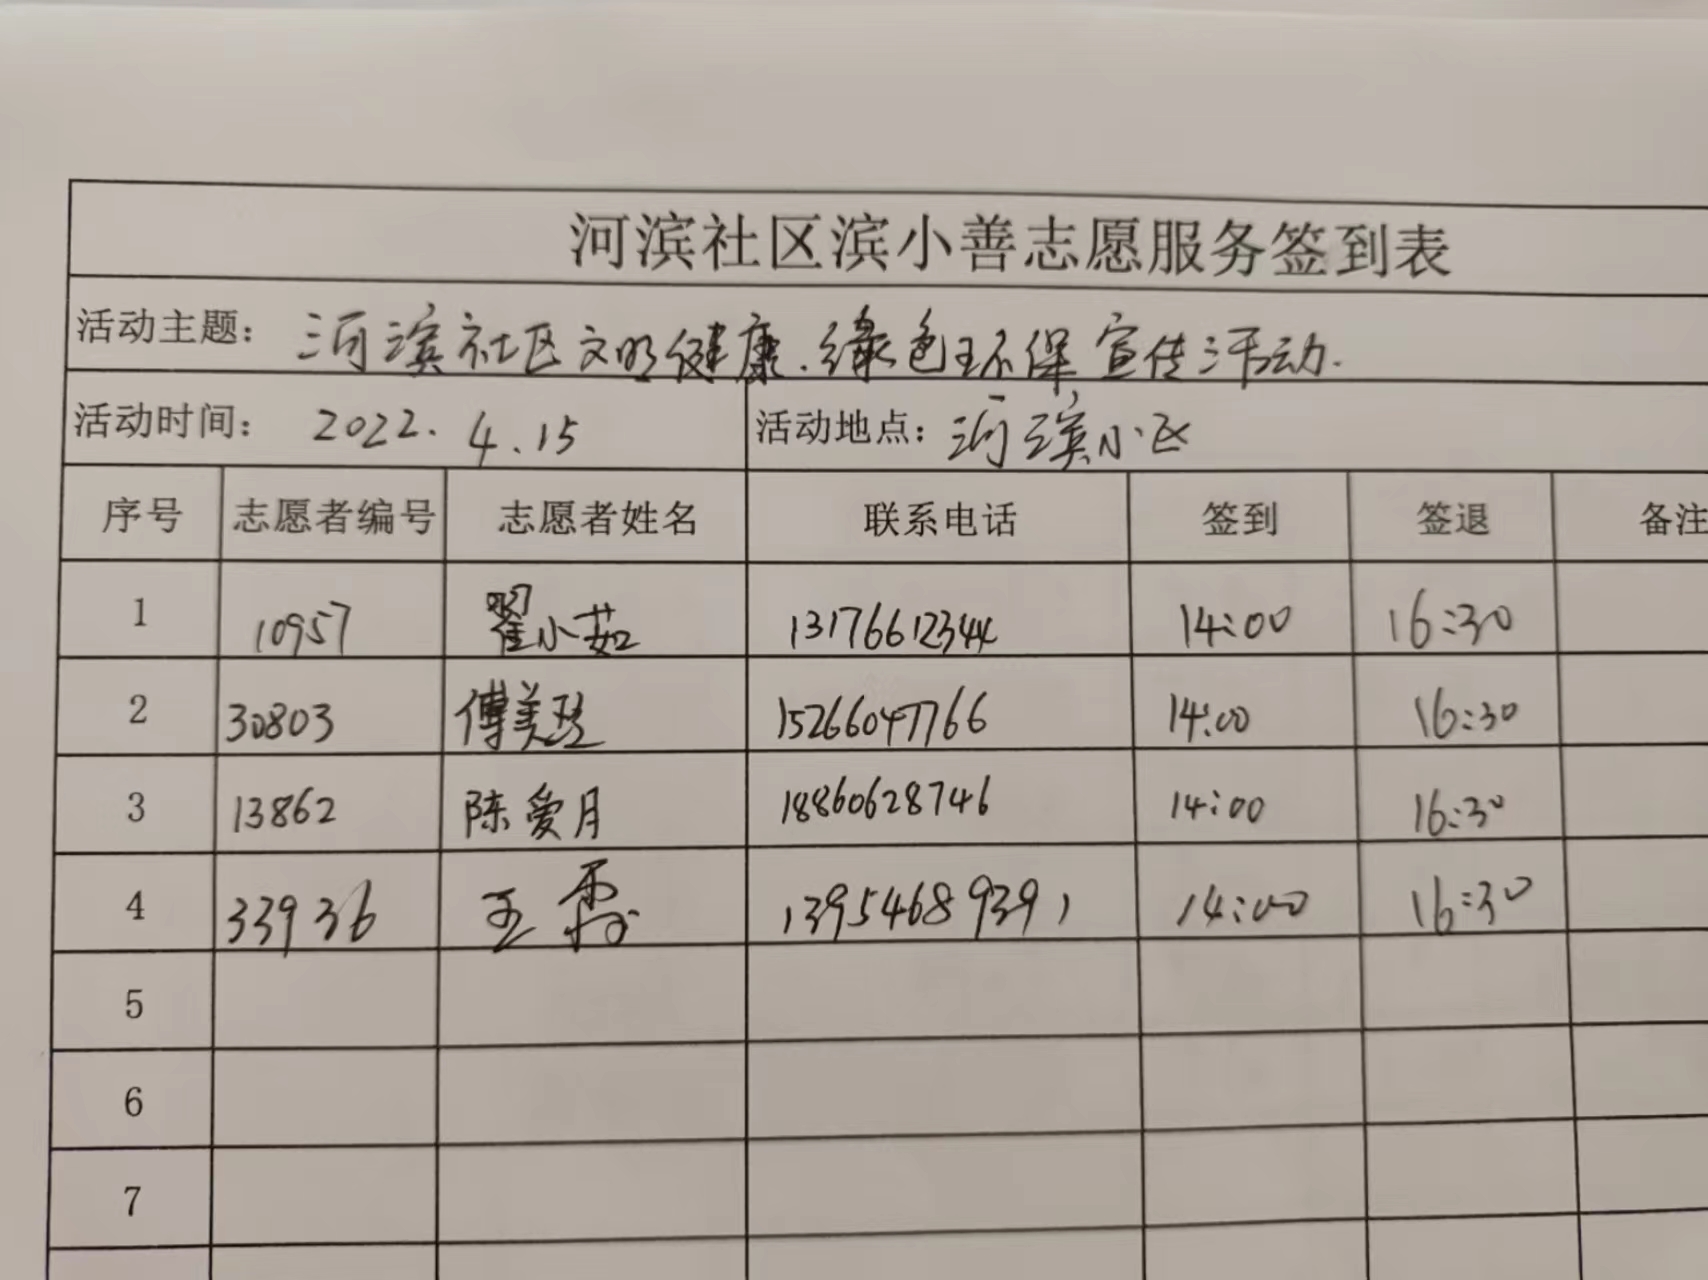 河滨社区滨小善志愿服务签到表
活动主题： 河滨社区文明健康.绿色环保宣传活动.
活动时间： 2022.4.15 活动地点：河滨小区
序号 志愿者编号 志愿者姓名 联系电话 签到 签退 备注
1 10957 翟小茹 13176612344 14:00 16:30
2 30803 傅美玲 15266047766 14:00 16:30
3 13862 陈爱月 18860628746 14:00 16:30
4 33936 王 13954689391 14:00 16:30
5
6
7